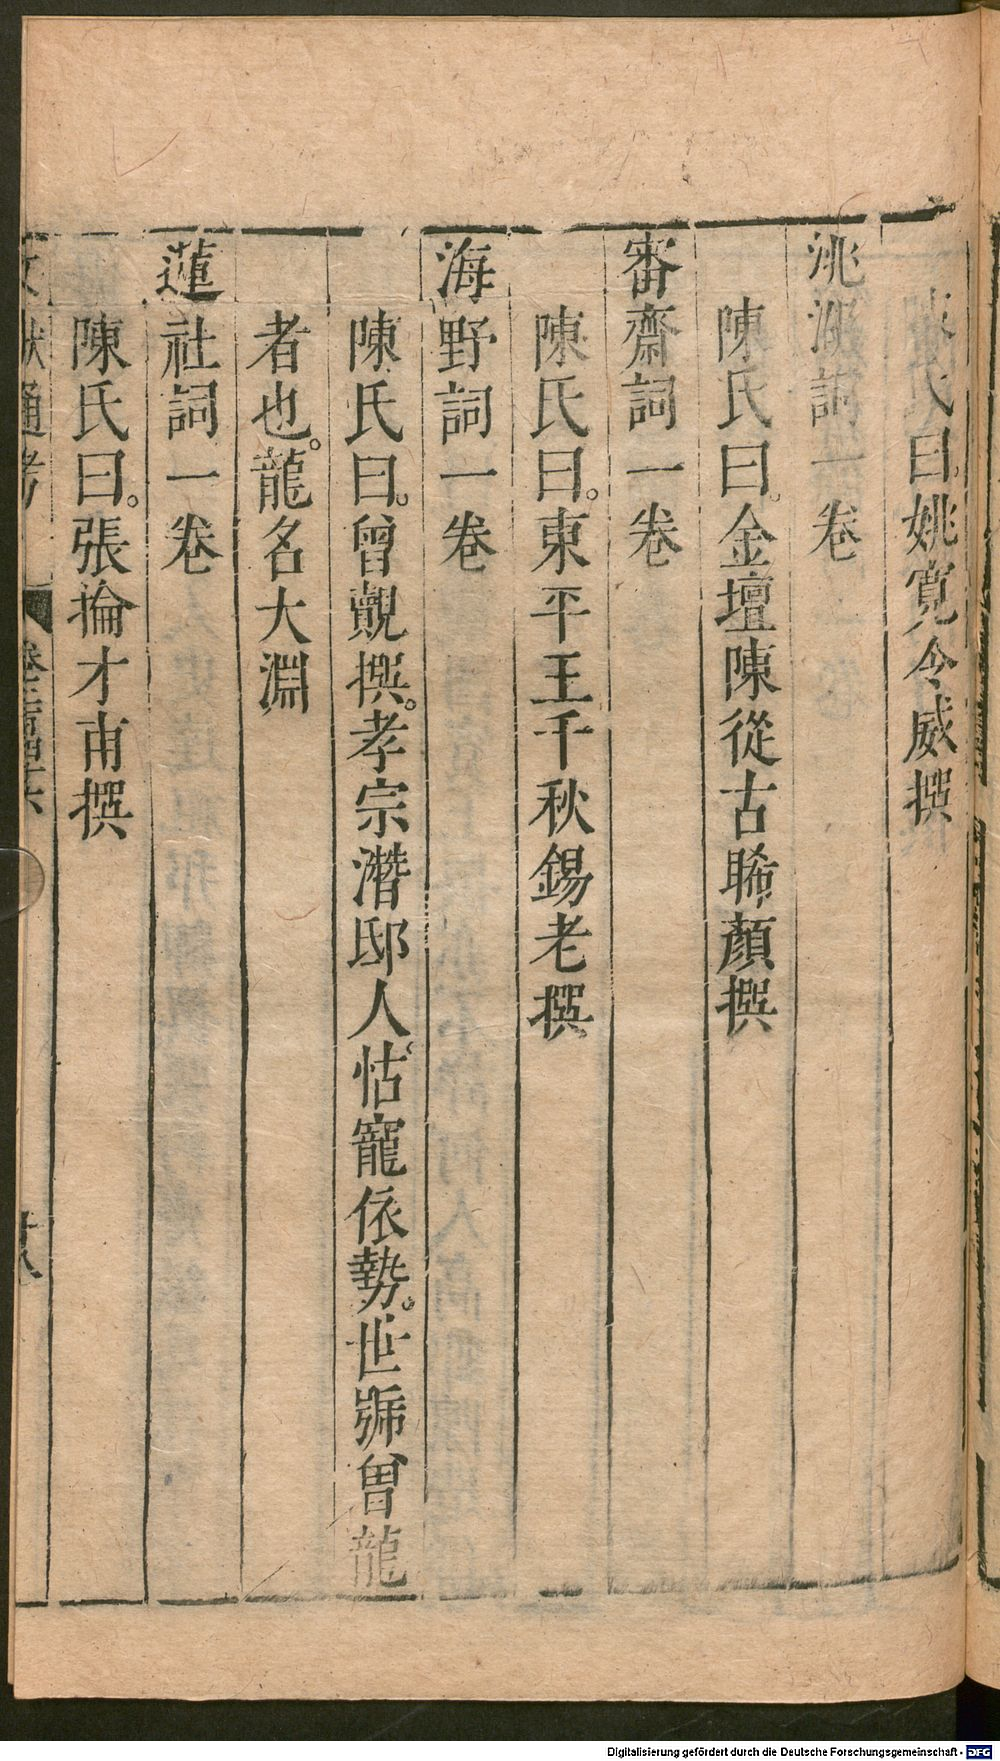 陳氏曰姚寛令威撰
洮湖詞一卷
陳氏曰金壇陳從古晞顏撰
審齋詞一卷
陳氏曰東平王千秋錫老撰
海野詞一卷
陳氏曰曾覿撰孝宗潛邸人怙寵依勢世號曾龍
者也龍名大淵
蓮社詞一卷
陳氏曰張掄才甫撰
文獻通考 卷二百四十六 廿八
Digitalisierung gefördert durch die Deutsche Forschungsgemeinschaft - DFG